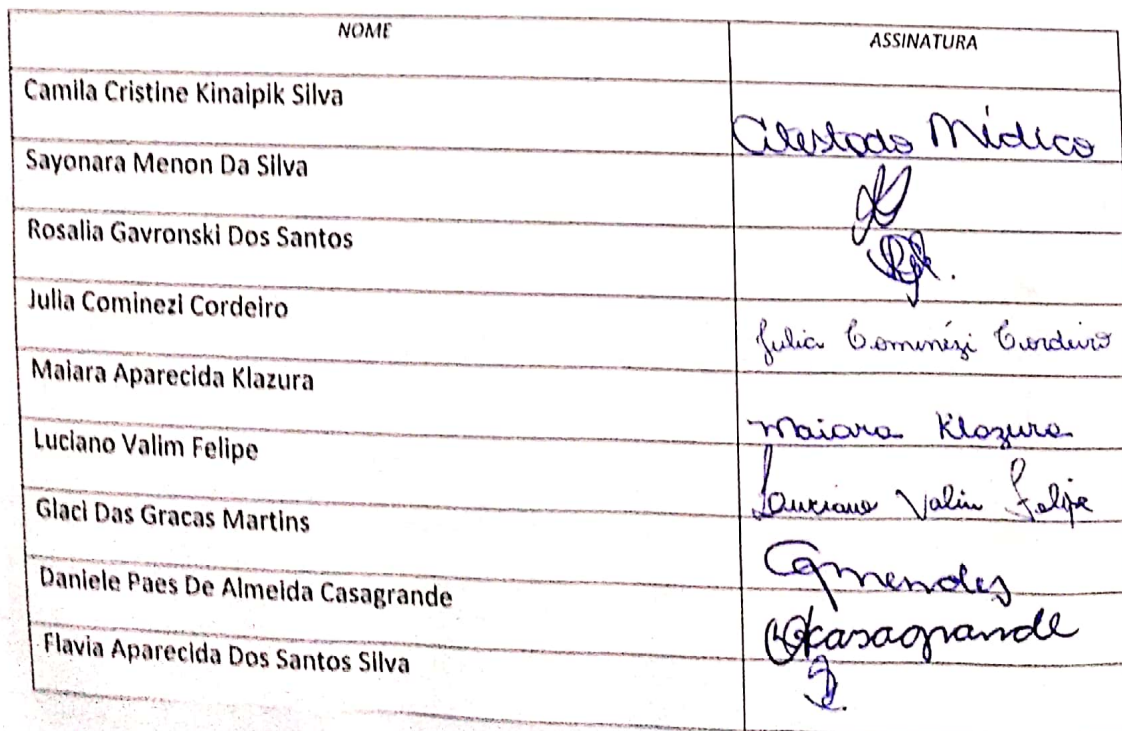 NOME ASSINATURA
Camila Cristine Kinaipik Silva Atestado Médico
Sayonara Menon Da Silva
Rosalia Gavronski Dos Santos
Julia Cominezi Cordeiro Julia Cominézi Cordeiro
Maiara Aparecida Klazura Maiara Klazura
Luciano Valim Felipe Luciano Valim Felipe
Glaci Das Gracas Martins Gmendes
Daniele Paes De Almeida Casagrande casagrande
Flavia Aparecida Dos Santos Silva